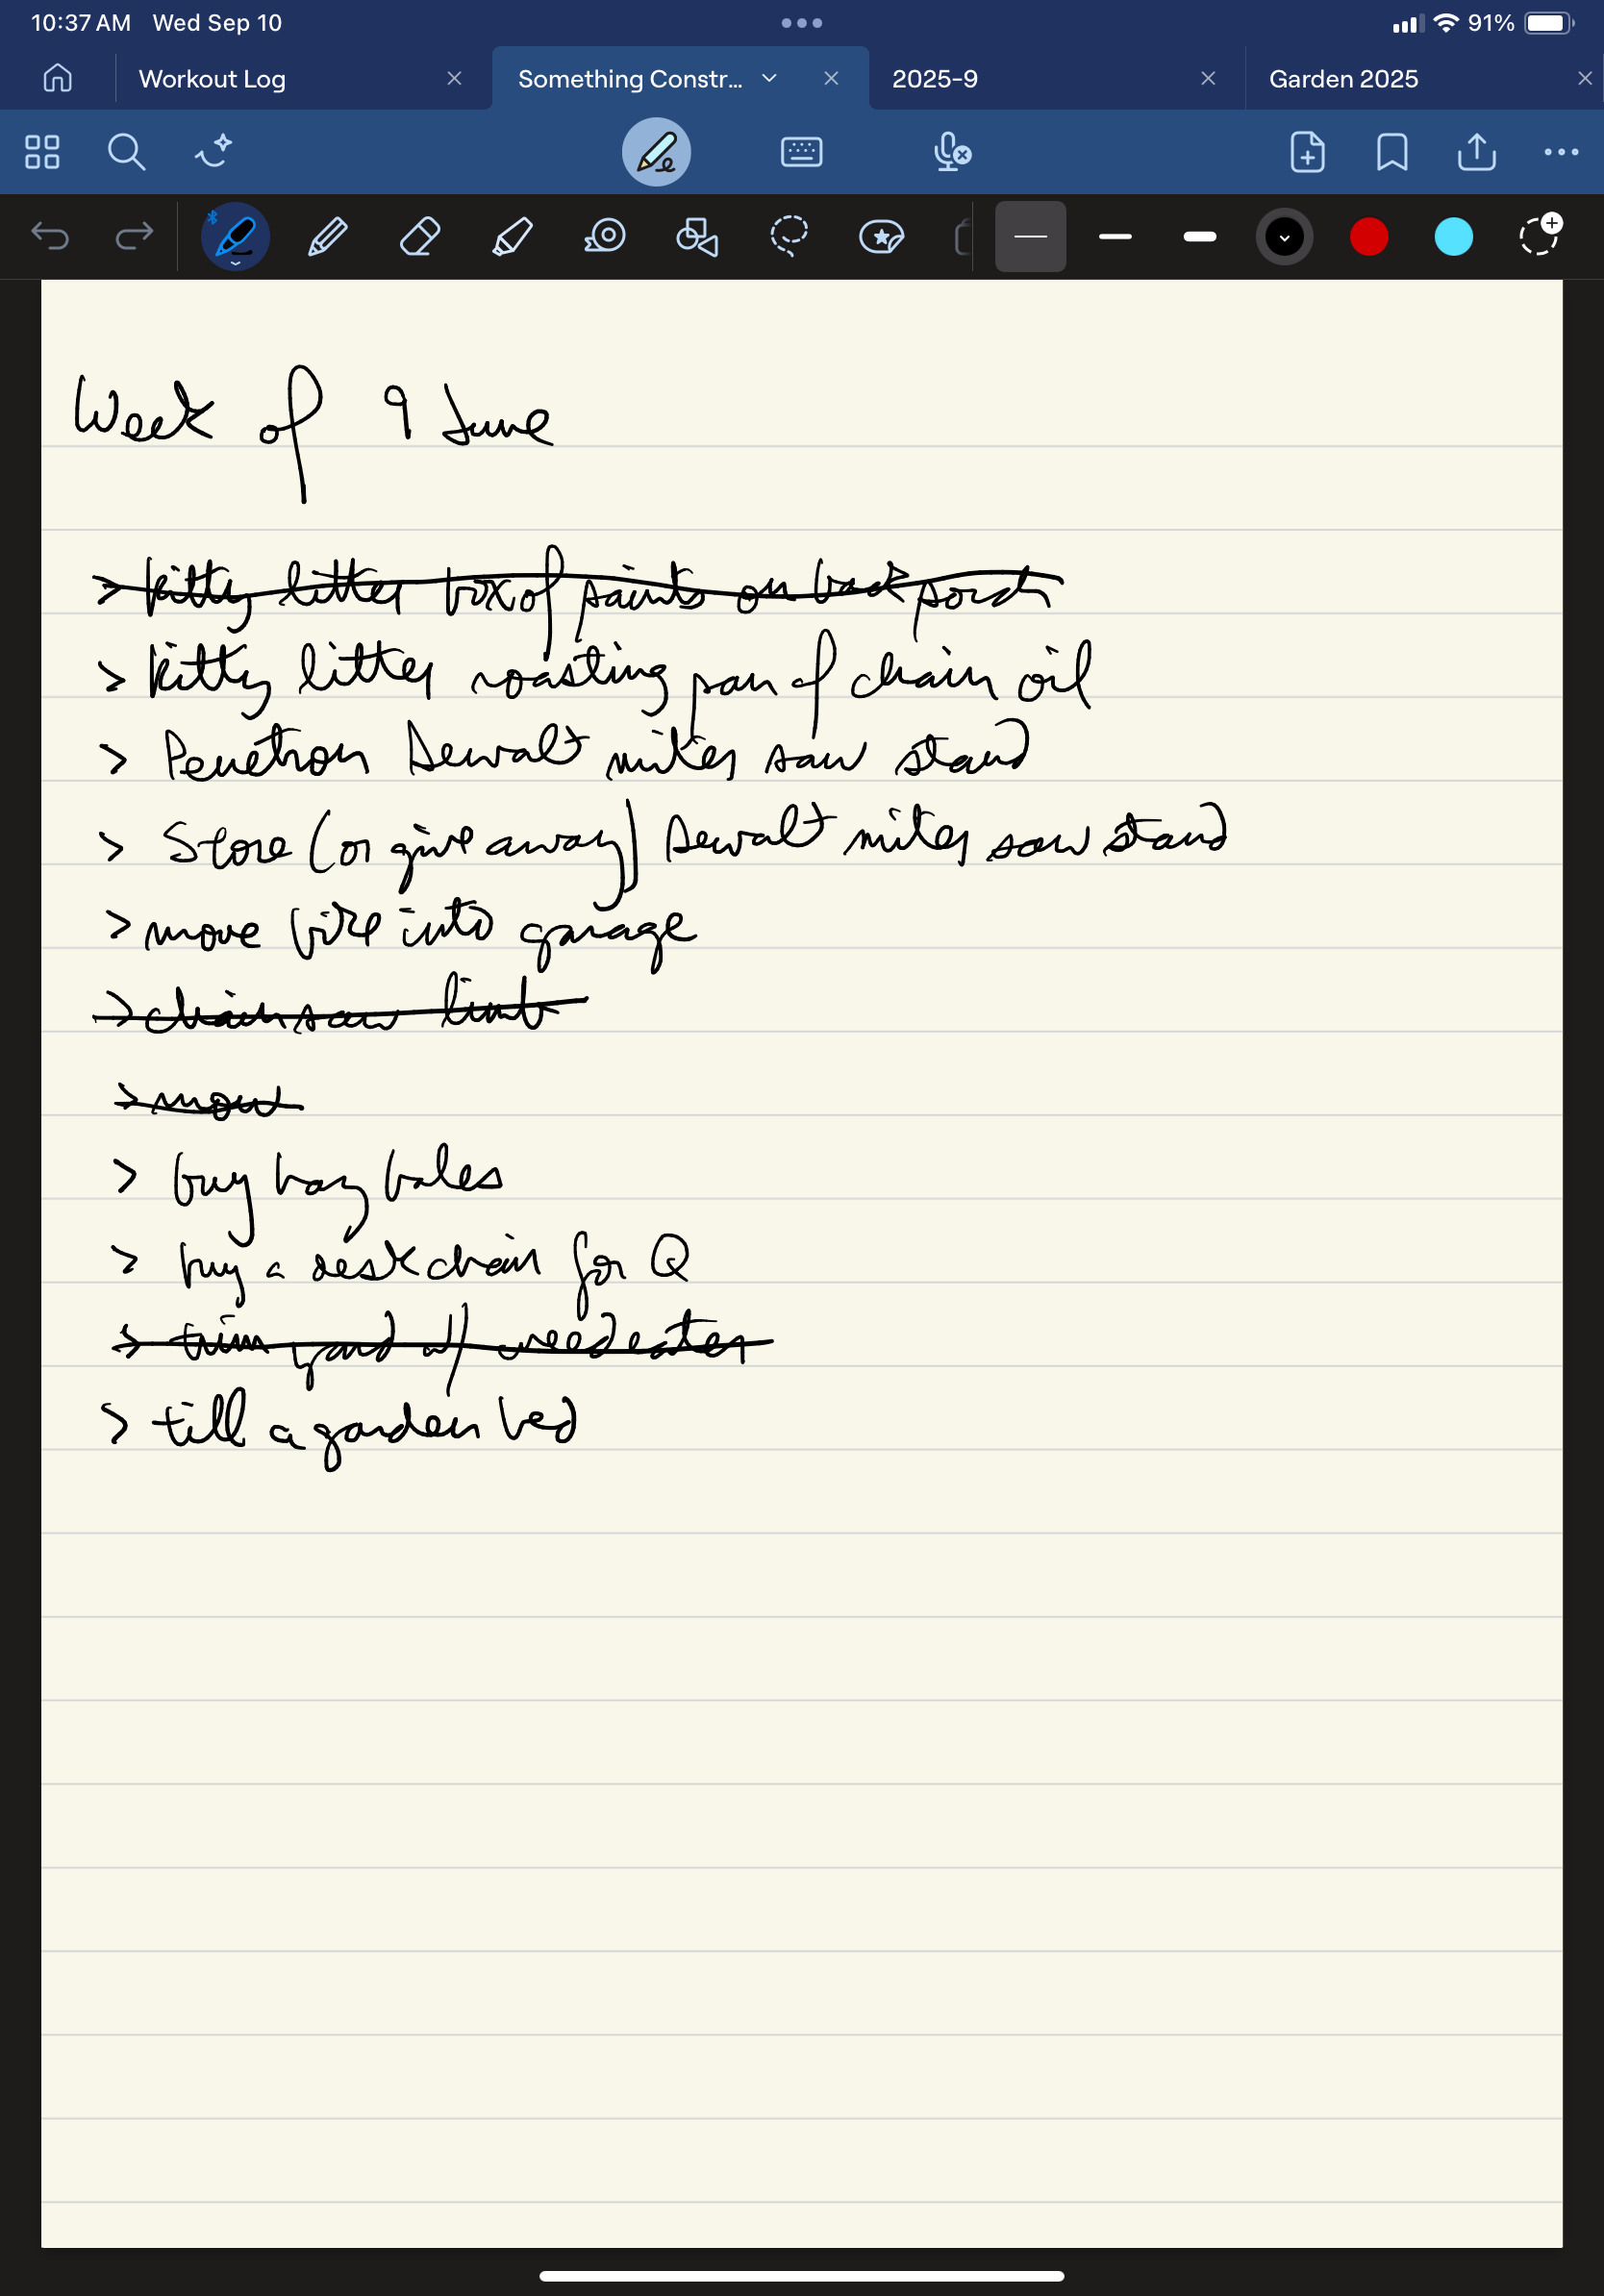 10:37 AM Wed Sep 10
91%
Workout Log
Something Constr...
2025-9
Garden 2025
Week of 9 June
> kitty litter box of paints on back porch
> kitty litter roasting pan of chain oil
> Penetron Dewalt miter saw stand
> Store (or give away) Dewalt miter saw stand
> move bike into garage
> chainsaw limb
> mow
> buy hay bales
> buy a desk chair for Q
> trim yard w/ weedeater
> till a garden bed